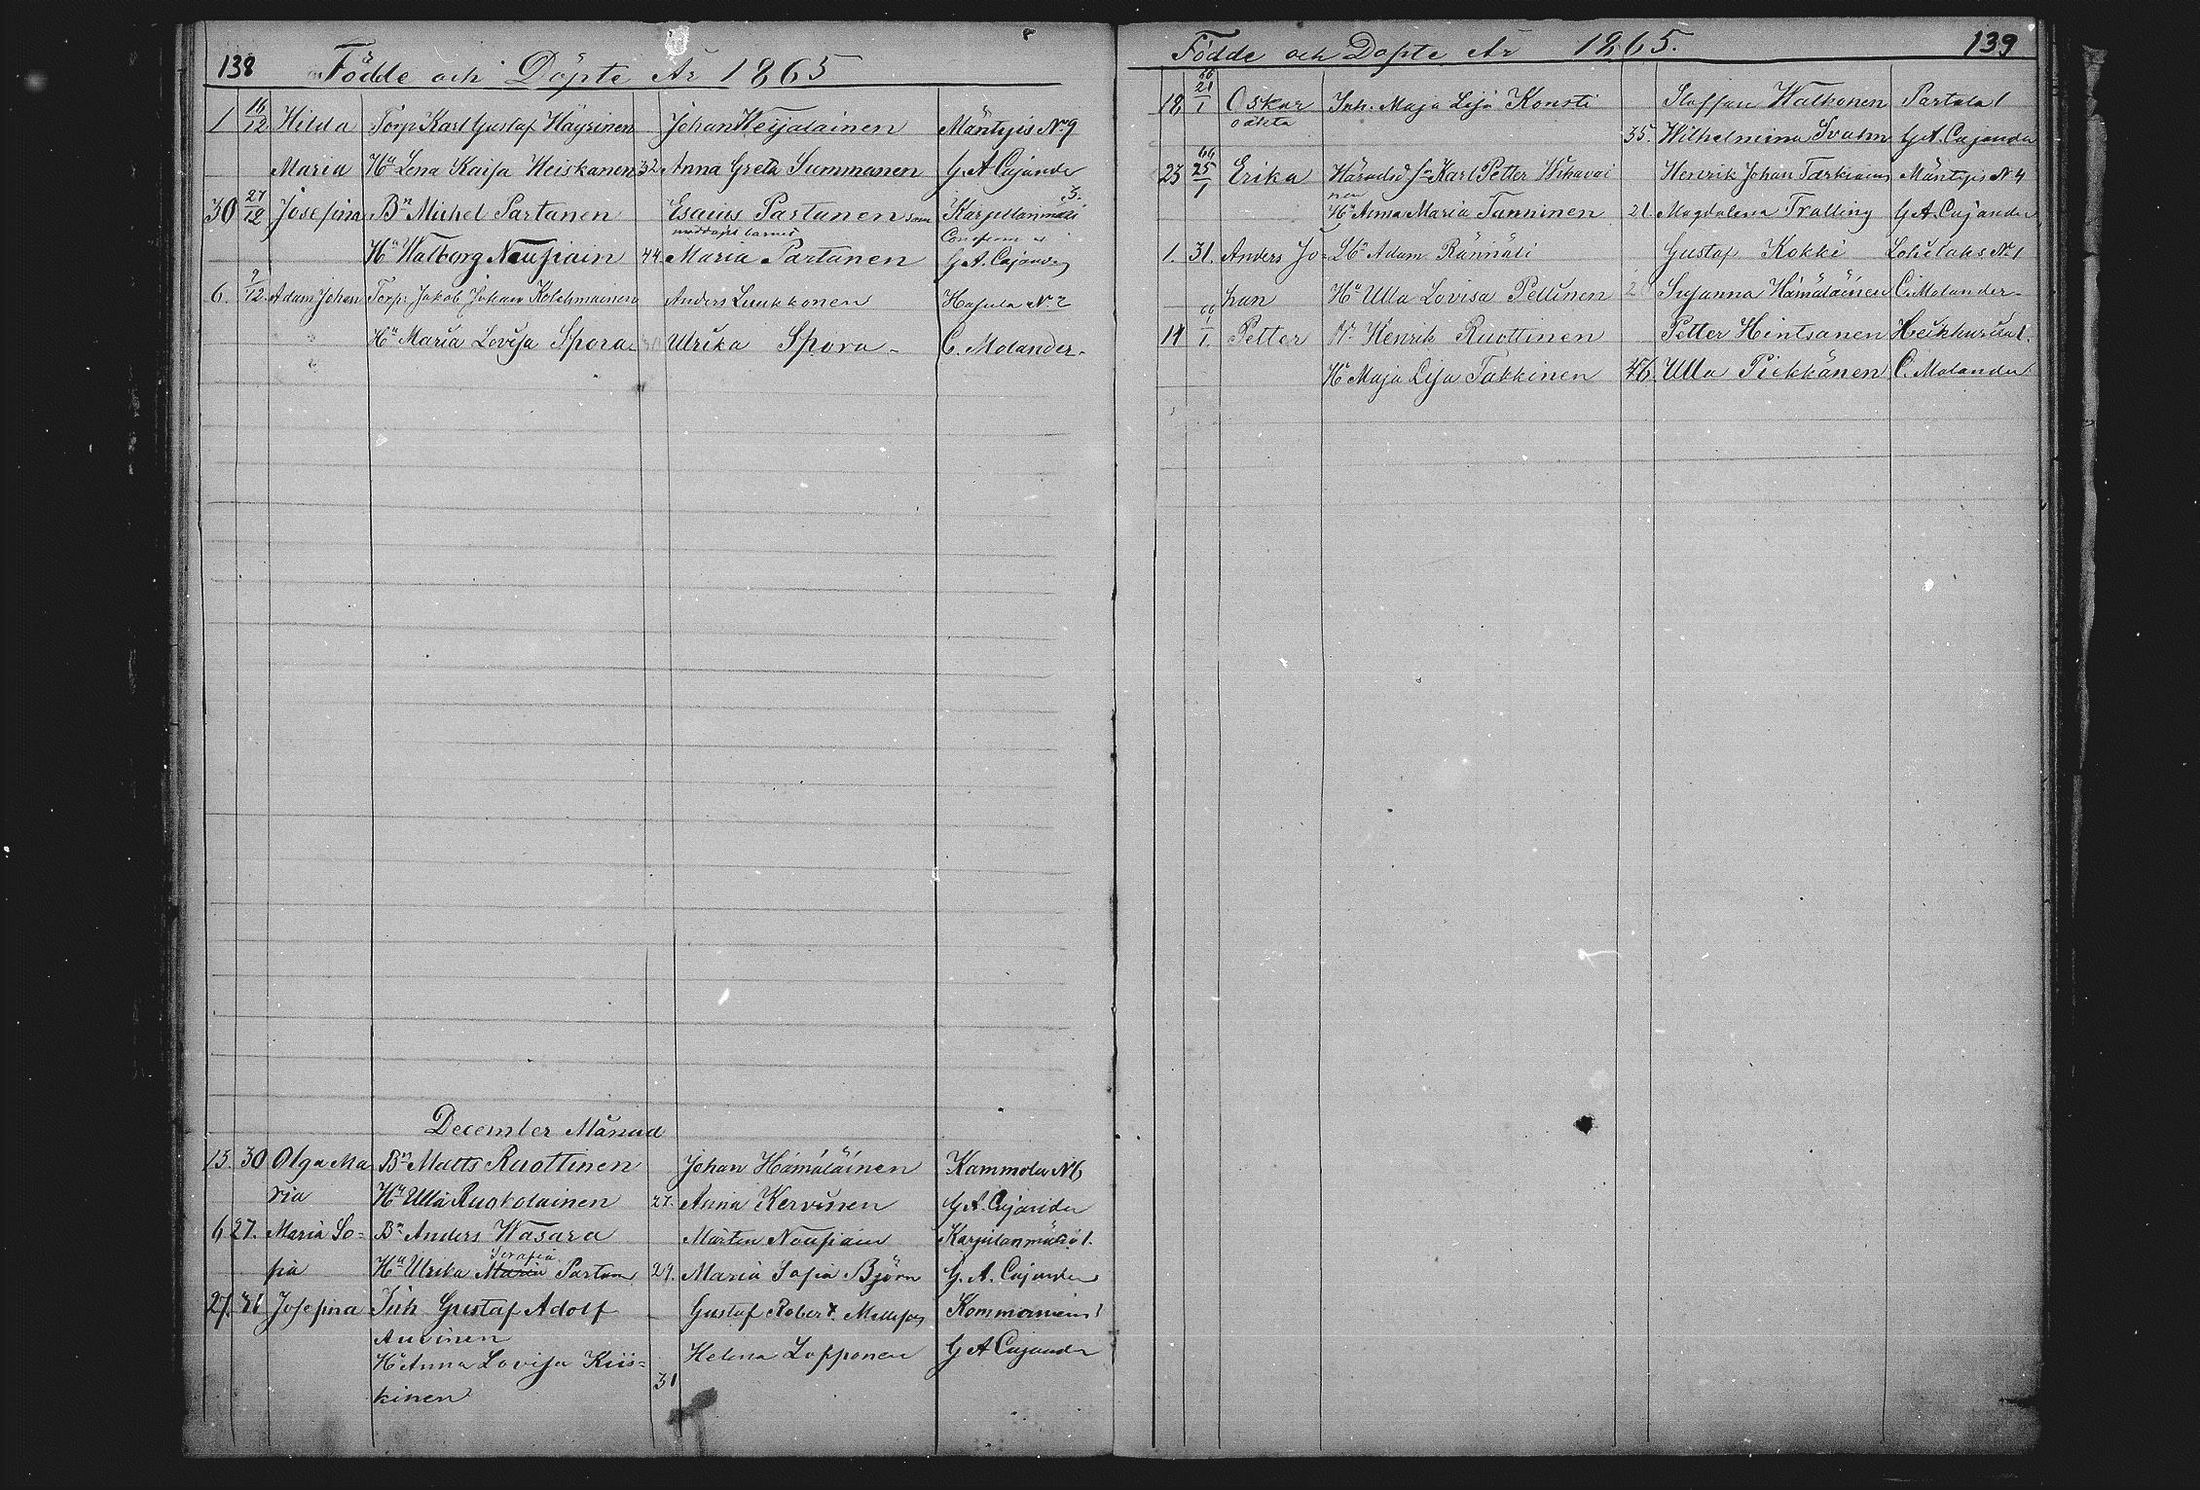 138 Födde och Döpte År 1865
1 16/12 Hilda Torp Karl Gustaf Häyrinen Johan Heijalainen Mäntyis No 9
Maria Hu Lena Kaisa Heiskanen 32 Anna Greta Summanen G. A. Cajander
30 27/12 Josefina Bn Michel Partanen Esaias Partanen som Karjulanmäki 3.
nöddöpt barnet
Hu Walborg Nousiain 44. Maria Partanen G. A. Cajander
6. 9/12. Adam Johan Torp. Jakob Johan Kolehmainen Anders Luukkonen Hasula No 2
Hu Maria Lovisa Spora Ulrika Spora - C. Molander.
December Månad
15. 30 Olga Ma Bn Matts Ruottinen Johan Hämäläinen Kammola N 6
ria Hu Ulla Ruokolainen 27. Anna Kervinen G. A. Cajander
6 27. Maria So= Bn Anders Wasara Mårten Nousiain Karjulanmäki 1.
fia Hu Ulrika Maria Serafia Partan 29. Maria Sofia Björn G. A. Cajander
27. 31 Josefina Inh Gustaf Adolf Gustaf Robert
Auvinen
Hu Anna Lovisa Kiis= Helena Lopponen G A Cajander
kinen 31
Födde och Döpte År 1865. 139
18 66 21/1 Oskar Inh. Maja Lisa Konsti Staffan Walkonen Partala 1
oäkta 35. Wilhelmina Svahn G. A. Cajander
23 66 25/1 Erika Häradsd Karl Petter Wihavai Henrik Johan Mäntyis N 4
Hu Anna Maria Tanninen 21. Magdalena Tralling G. A. Cajander
1. 31. Anders Jo= Adam Rännäli Gustaf Kokki Lohilaks No 1
han Hu Ulla Lovisa Pellinen Susanna Hämäläinen C. Molander.
14 66 1/1 Petter Henrik Ruottinen Petter Hintsanen
Hu Maja Lisa Takkinen 46. Ulla Piekkänen C. Molander